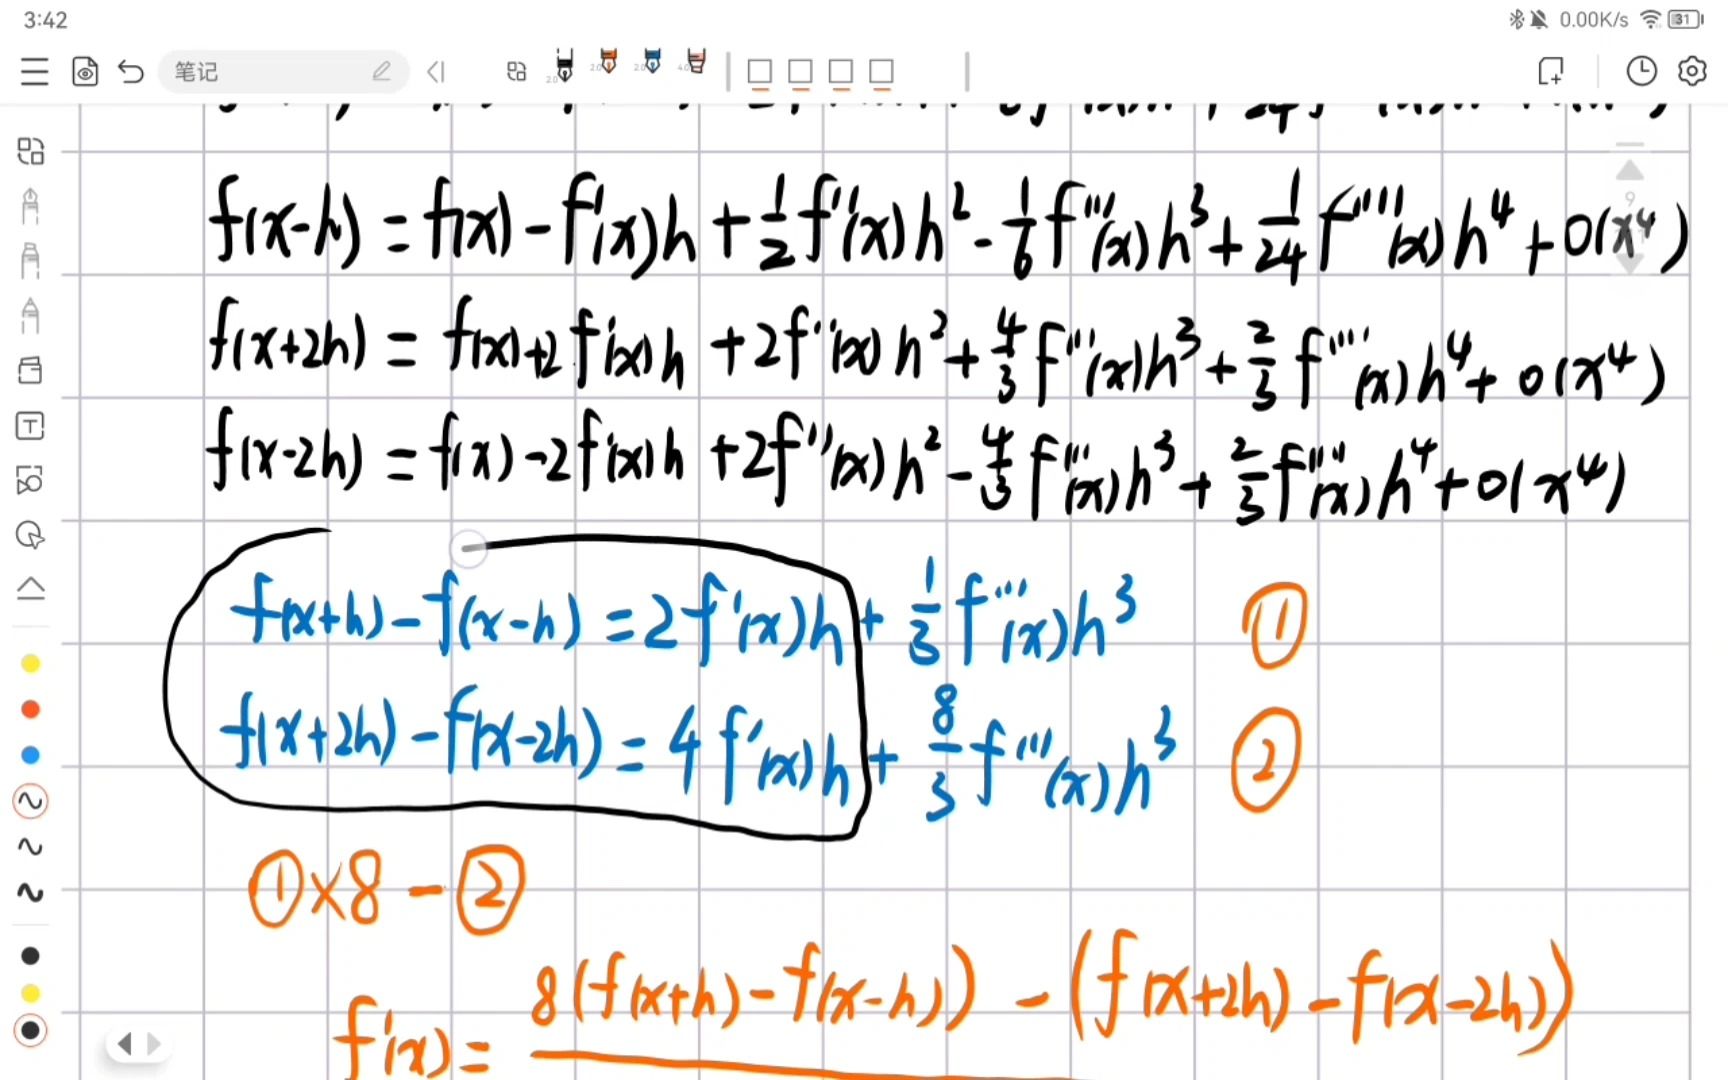 3:42
0.00K/s
31
笔记
2.0 2.0 2.0 4.0
f(x-h) = f(x) - f'(x)h + 1/2 f''(x)h² - 1/6 f'''(x)h³ + 1/24 f''''(x)h⁴ + o(x⁴)
f(x+2h) = f(x) + 2f'(x)h + 2f''(x)h² + 4/3 f'''(x)h³ + 2/3 f''''(x)h⁴ + o(x⁴)
f(x-2h) = f(x) - 2f'(x)h + 2f''(x)h² - 4/3 f'''(x)h³ + 2/3 f''''(x)h⁴ + o(x⁴)
f(x+h) - f(x-h) = 2f'(x)h + 1/3 f'''(x)h³ ①
f(x+2h) - f(x-2h) = 4f'(x)h + 8/3 f'''(x)h³ ②
①×8 - ②
8(f(x+h) - f(x-h)) - (f(x+2h) - f(x-2h))
f'(x) =